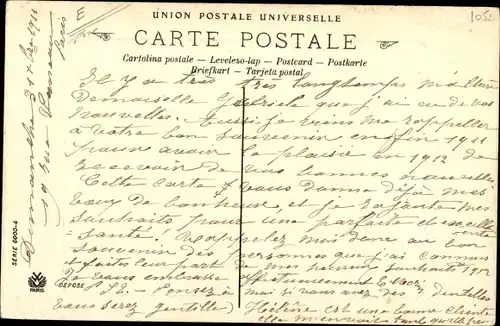 UNION POSTALE UNIVERSELLE
CARTE POSTALE
Cartolina postale — Levelezo-lap — Postcard — Postkarte
Briefkart — Tarjeta postal
E
105
Paris
Dimanche 31 1911
19 rue
Il y a très très longtemps ma chère
Demoiselle que j'ai eu de vos
nouvelles. Aussi je viens me rappeler
à votre bon souvenir en fin 1911
pour avoir le plaisir en 1912 de
recevoir de vos bonnes nouvelles
Cette carte vous donne déjà mes
vœux de bonheur et je rajoute mes
souhaits pour une parfaite et excellente
santé. Rappelez moi donc au bon
souvenir des personnes que j'ai connues
et faites leur part de mes souhaits 1912
Je vous embrasse affectueusement
P.S. - Pensez à moi si vous avez des dentelles
vous serez gentille) Hélène est une bonne cliente
elle m'envoie
SERIE 6000-4
PARIS
DEPOSE